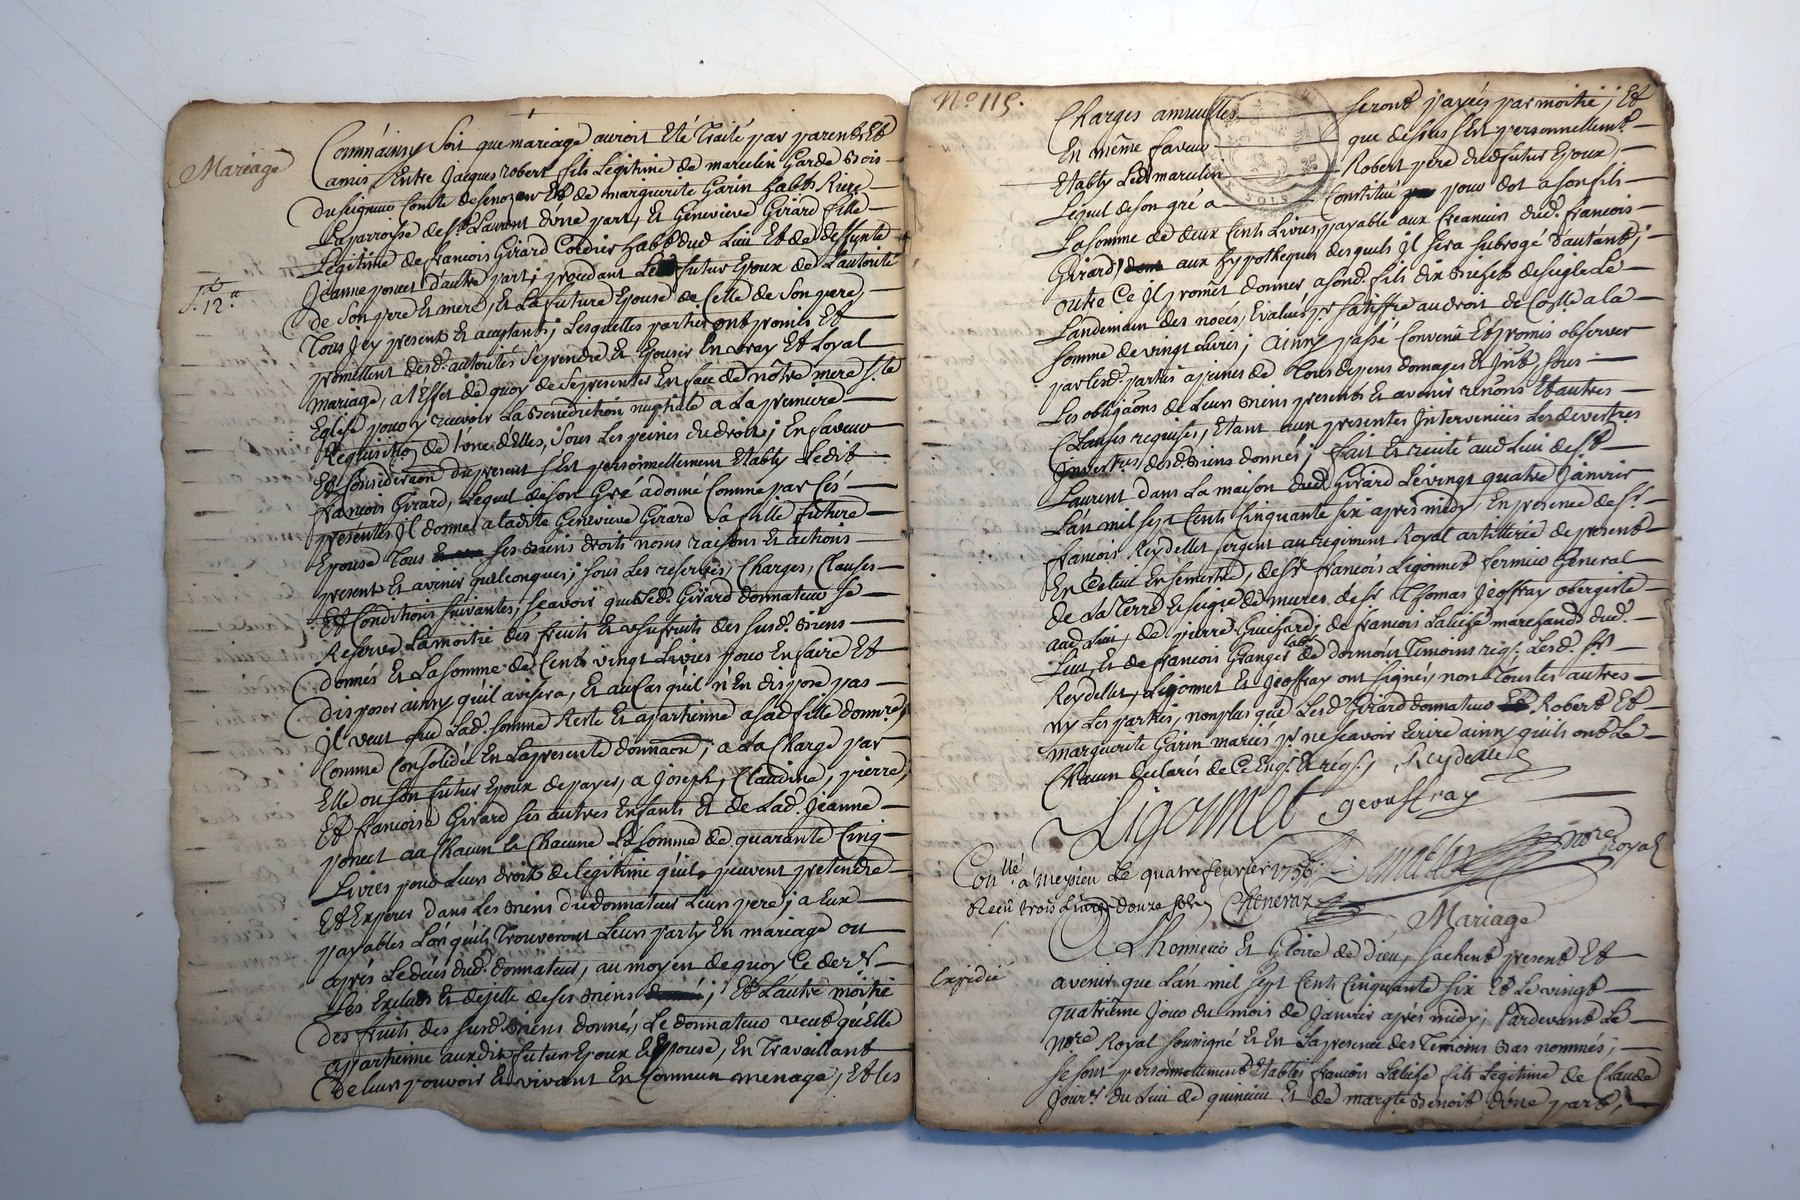 Mariage
Comm'ainsy soit que mariage auroit Eté Traité par parents Et
amis Entre Jacques robert fils Legitime de marcelin Garde Bois
du seigneur Comte de senozan Et de marguerite Garin habts Rière
La parroisse de st. Laurent d'une part, Et Genevieve Girard fille
Legitime de francois Girard Cordier habt dud. Lieu Et de deffunte
Jeanne poncet d'autre part; procedant Le futur Epoux de L'autorité
de son pere Et mere, Et La future Epouse de Celle de son pere,
Tous Icy present Et acceptants; Lesquelles parties ont promis Et
promettent desd. autorités se prendre Et Epouser En vray Et Loyal
mariage, a l'Effet de quoy de se presenter En face de nôtre mere ste
Eglise pour y recevoir La Benediction nuptiale a La premiere
Requisition de l'une d'Elles, sous Les peines du droit; En faveur
Et Consideraôn du present s'Est personnellement Etably Ledit
francois Girard, Lequel de son Gré a donné Comme par Cés
présentes Il donne a ladite Genevieve Girard sa fille future
Epouse Tous ses Biens droits noms raisons Et actions
present Et avenir quelconques; sous Les reserves, Charges, Clauses
Et Conditions suivantes, sçavoir que Led. Girard donnateur se
Reserve La moitié des fruits Et usufruits des susd. Biens
donnés Et La somme de Cents vingt Livres pour En faire Et
disposer ainsy qu'il avisera, Et au Cas qu'il n'En dispose pas
Il veut que Lad. somme Reste Et apartienne a sad. fille donnre,
Comme Consolidée En La presente donnaôn; a La Charge par
Elle ou son futur Epoux de payer, a Joseph, Claudine, pierre,
Et francoise Girard ses autres Enfants Et de Lad. Jeanne
poncet au Chacun La somme de quarante Cinq
Livres pour Leurs droits de Legitime qu'ils peuvent pretendre
Et Esperer dans Les Biens du donnateur Leur pere; a Eux
payables L'ors qu'ils Trouveront Leur party En mariage ou
après Le deces dud. donnateur, au moyen de quoy Ce der
Les Exclus Et dejette de ses Biens; Et L'autre moitié
des fruits des susd. Biens donnés, Le donnateur veut qu'Elle
apartienne auxdits futur Epoux Et Epouse, En Travaillant
de Leur pouvoir Et vivant En Commun menage; Et les
12.
No 115.
Charges annuelles seront payées par moitié; Et
En même faveur que dessus s'Est personnellemt
Etably Led. marcelin Robert pere dud. futur Epoux,
Lequel de son gré a Constitué pour dot a son fils
La somme de deux Cents Livres payable aux Creanciers dud. francois
Girard aux hypotheques desquels Il sera subrogé d'autant;
outre Ce Il promet donner a sond. fils dix Bichets de seigle Le
Landemain des noces, Evalués pr satisfre au droit de Controlle a la
somme de vingt Livres; ainsy passé Convenu Et promis observer
par lesd. parties a peines de Tous depens domages Et Intts, sous
Les obligaôns de Leurs Biens presents Et avenir renôns Et autres
Clauses requises, Etant aux presentes Intervenües Les devestres
Investres desd. Biens donnés; fait Et recité aud. Lieu de st
Laurent dans La maison dud. Girard Le vingt quatre Janvier
L'an mil sept Cents Cinquante six après midy, En presence de sr
francois Reydellet sergent au regiment Royal artillerie de present
En Ce Lieu En semestre, de sr francois Ligonnet fermier General
de La Terre Et seigrie de mures de sr Thomas Jeoffray obergiste
aud. Lieu, de pierre Guichard, de francois Laliche marchands dud.
Lieu, Et de francois Granger labr de Temoins reqs. Lesd. srs
Reydellet, Ligonnet Et Jeoffray ont signés, non Tous Les autres
ny Les parties, non plus que Lesd. Girard donnateur Robert Et
marguerite Garin mariés pr ne sçavoir Ecrire ainsy qu'ils ont Le
Chacun declarés de Ce Enqs. Et reqs.,
Reydellet
Ligonnet geouffray
nore Royal
Conllé a Meysieu Le quatre fevrier 1756.
Reçu trois Livres douze sols Cheneraz
Mariage
A L'honneur Et Gloire de Dieu, sachent present Et
Expedié
avenir que L'an mil sept Cents Cinquante six Et Le vingt
quatrieme Jour du mois de Janvier après midy; Pardevant Le
Nore Royal soussigné Et En La presence des Temoins Bas nommés;
se sont personnellement Etablis francois Laliche fils Legitime de Claude
Jourr du Lieu de quincieu Et de margte Benoit d'une part,